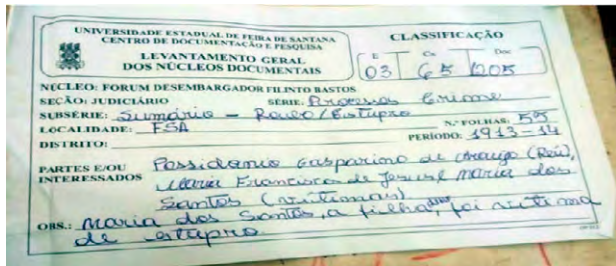 UNIVERSIDADE ESTADUAL DE FEIRA DE SANTANA
CENTRO DE DOCUMENTAÇÃO E PESQUISA
LEVANTAMENTO GERAL
DOS NÚCLEOS DOCUMENTAIS
CLASSIFICAÇÃO
E Cx Doc
03 65 1205
NÚCLEO: FORUM DESEMBARGADOR FILINTO BASTOS
SEÇÃO: JUDICIÁRIO SÉRIE: Processos Crime
SUBSÉRIE: Sumário - Roubo/Estupro Nº FOLHAS: 55
LOCALIDADE: FSA PERÍODO: 1913-14
DISTRITO:
PARTES E/OU INTERESSADOS Possidonio Gasparino de Araujo (Réu),
Maria Francisca de Jesus e Maria dos
Santos (vitimas)
OBS.: Maria dos Santos, a filha, foi vitima
de estupro